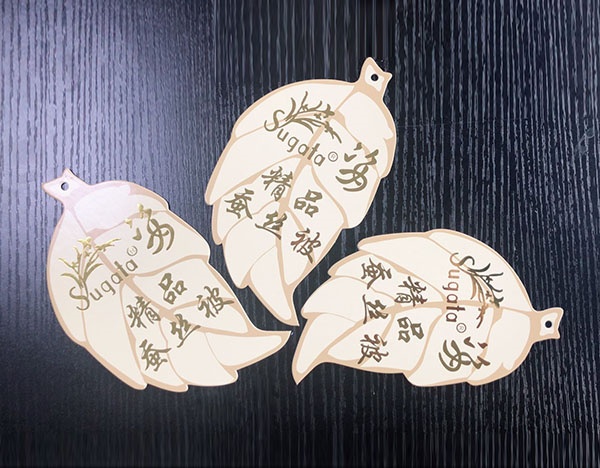 Sugata®
精品
蚕丝被
Sugata®
精品
蚕丝被
Sugata®
精品
蚕丝被